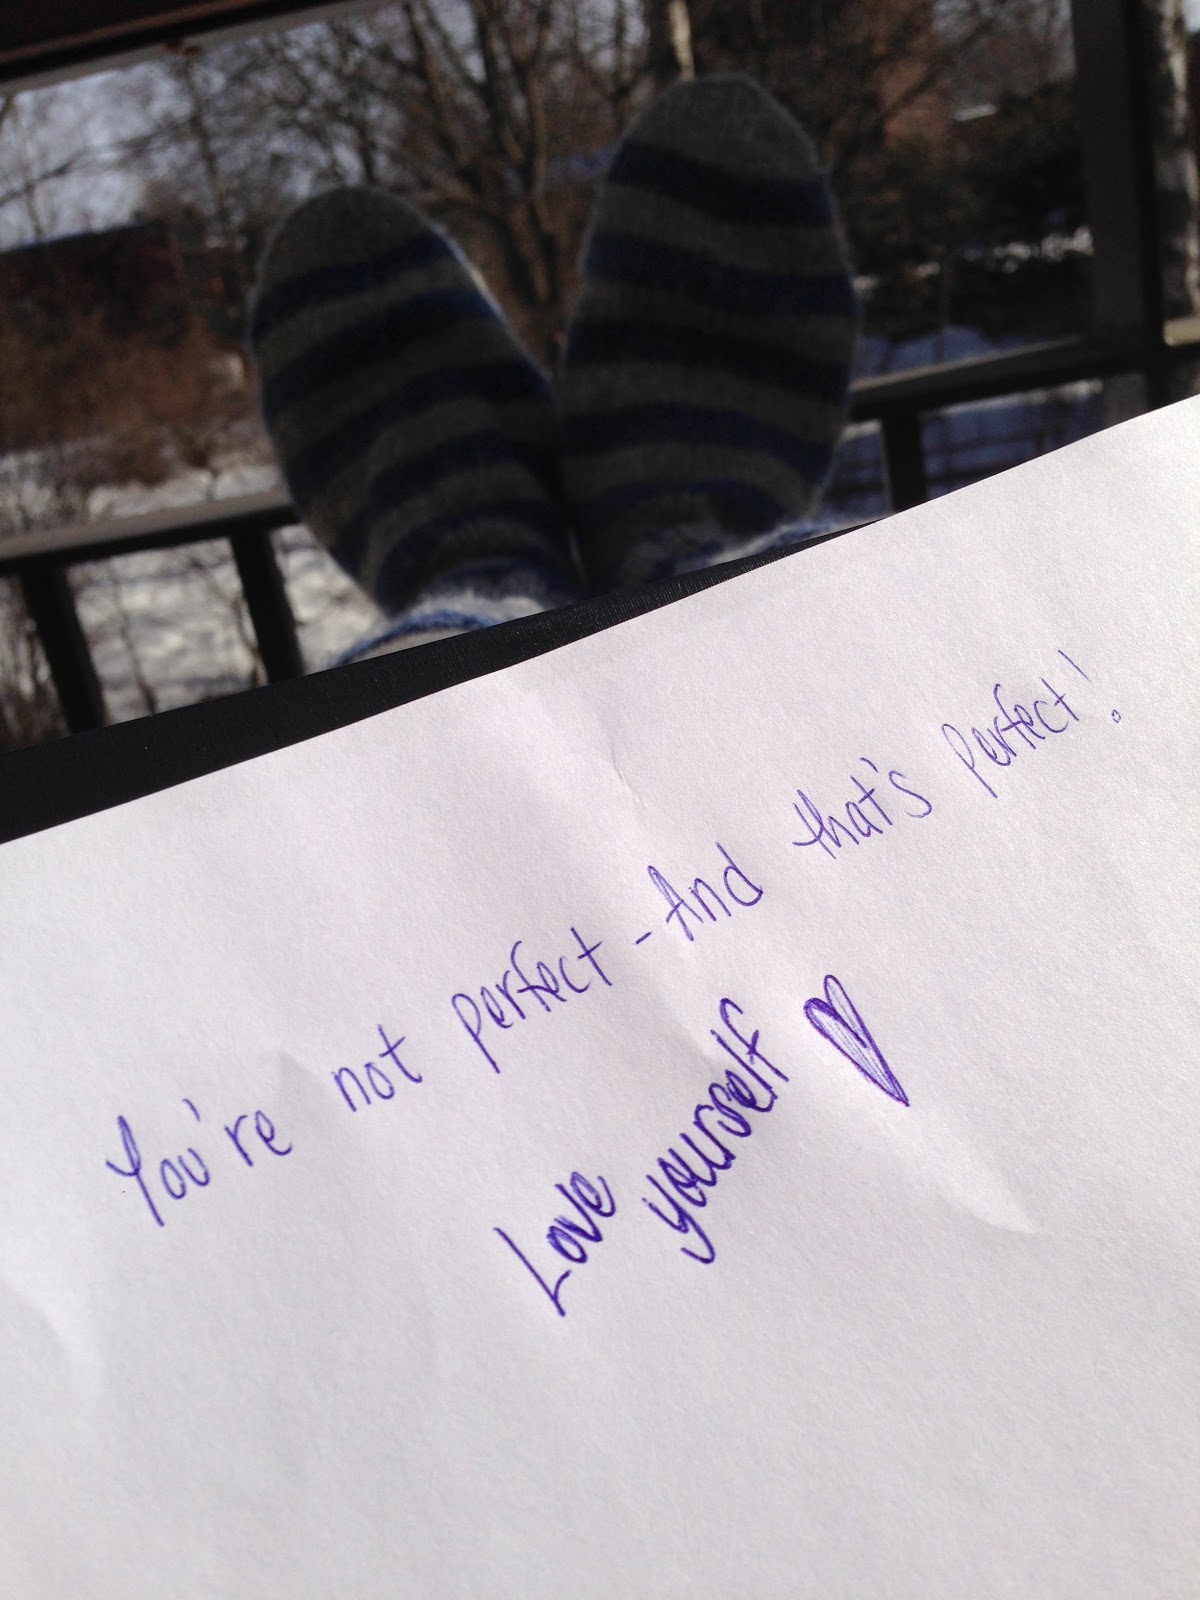 You're not perfect - And that's perfect!
Love yourself